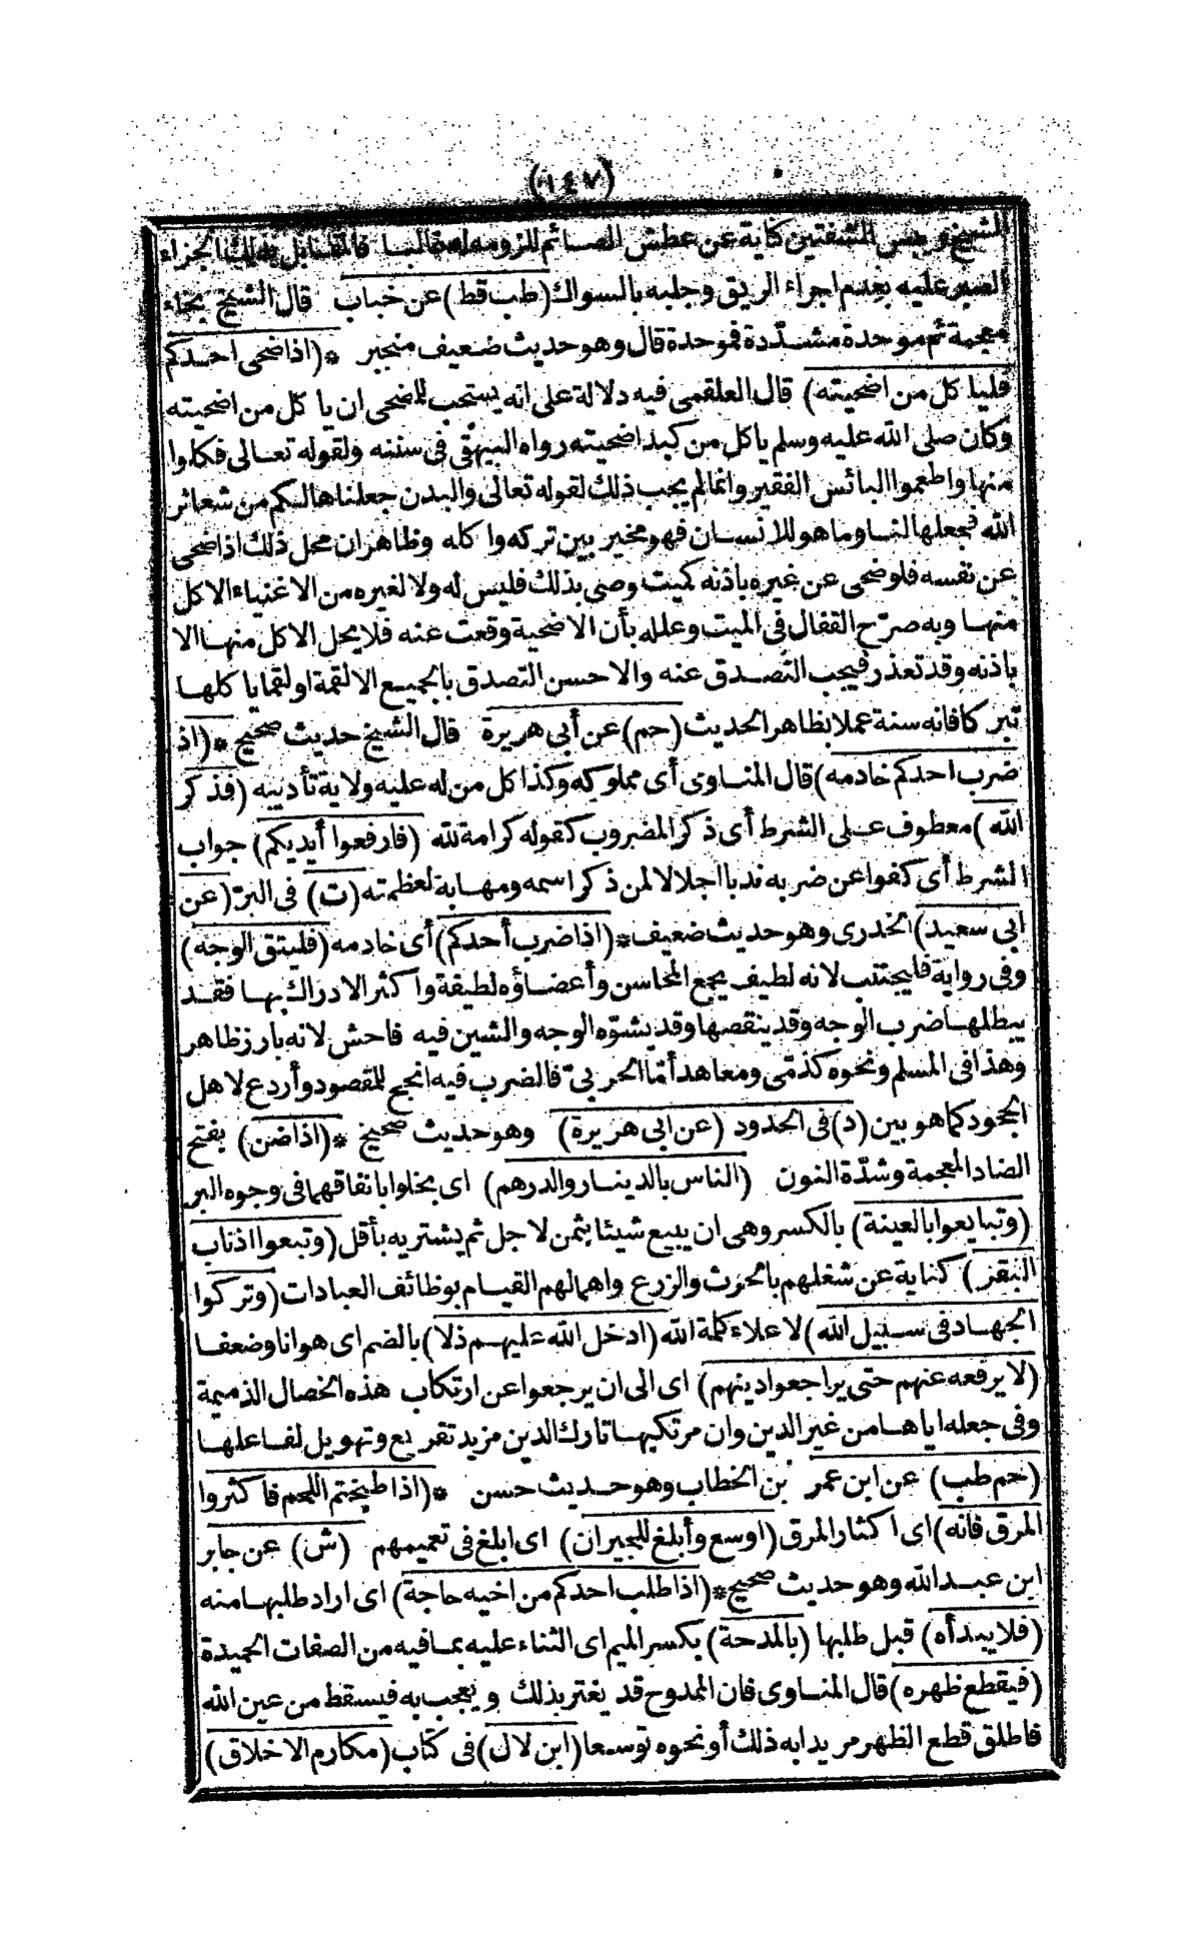 (١٤٧)
الشيخ ويبس الشفتين كناية عن عطش الصائم للزومه له غالبا فالمقابل بذلك الجزاء
الصبر عليه بعدم اجراء الريق وجلبه بالسواك (طب قط) عن خباب قال الشيخ بخاء
معجمة ثم موحدة مشدّدة فموحدة قال وهو حديث ضعيف منجبر * (اذا ضحى احدكم
فليا كل من اضحيته) قال العلقمى فيه دلالة على انه يستحب للضحى ان يا كل من اضحيته
وكان صلى الله عليه وسلم ياكل من كبد اضحيته رواه البيهقى فى سننه ولقوله تعالى فكلوا
منها واطعموا البائس الفقير وانما لم يجب ذلك لقوله تعالى والبدن جعلناها لكم من شعائر
الله فجعلها لنا وما هو للانسان فهو مخير بين تركه وا كله وظاهر ان محل ذلك اذا ضحى
عن نفسه فلو ضحى عن غيره باذنه كميت وصى بذلك فليس له ولا لغيره من الاغنياء الاكل
منها وبه صرّح القفال فى الميت وعلله بأن الاضحية وقعت عنه فلا يحل الاكل منها الا
باذنه وقد تعذر فيجب التصدق عنه والاحسن التصدق بالجميع الا لقمة او لقما يا كلها
تبر كا فانه سنة عملا بظاهر الحديث (حم) عن أبى هريرة قال الشيخ حديث صحيح * (اذ
ضرب احدكم خادمه) قال المناوى أى مملوكه وكذا كل من له عليه ولاية تأديبه (فذكر
الله) معطوف على الشرط أى ذكر المضروب كقوله كرامة لله (فارفعوا أيديكم) جواب
الشرط أى كفوا عن ضربه ندبا اجلالا لمن ذكر اسمه ومهابة لعظمته (ت) فى البرّ (عن
ابى سعيد) الخدرى وهو حديث ضعيف * (اذا ضرب أحدكم) أى خادمه (فليتق الوجه)
وفى رواية فليجتنب لانه لطيف يجمع المحاسن وأعضاؤه لطيفة واكثر الادراك بها فقد
يبطلها ضرب الوجه وقد ينقصها وقد يشوّه الوجه والشين فيه فاحش لانه بارز ظاهر
وهذا فى المسلم ونحوه كذمّى ومعاهد أمّا الحربىّ فالضرب فيه انجح للمقصود وأردع لاهل
الجحود كما هو بين (د) فى الحدود (عن ابى هريرة) وهو حديث صحيح * (اذا ضن) بفتح
الضاد المعجمة وشدّة النون (الناس بالدينار والدرهم) اى بخلوا بانفاقهما فى وجوه البر
(وتبايعوا بالعينة) بالكسر وهى ان يبيع شيئا بثمن لاجل ثم يشتريه بأقل (وتبعوا اذناب
البقر) كناية عن شغلهم بالحرث والزرع واهمالهم القيام بوظائف العبادات (وتركوا
الجهاد فى سبيل الله) لاعلاء كلمة الله (ادخل الله عليهم ذلا) بالضم اى هوانا وضعفا
(لا يرفعه عنهم حتى يراجعوا دينهم) اى الى ان يرجعوا عن ارتكاب هذه الخصال الذميمة
وفى جعله اياها من غير الدين وان مرتكبها تارك الدين مزيد تقريع وتهويل لفاعلها
(حم طب) عن ابن عمر بن الخطاب وهو حديث حسن * (اذا طبختم اللحم فاكثروا
المرق فانه) اى اكثار المرق (اوسع وأبلغ للجيران) اى ابلغ فى تعميمهم (ش) عن جابر
ابن عبد الله وهو حديث صحيح * (اذا طلب احدكم من اخيه حاجة) اى اراد طلبها منه
(فلا يبدأه) قبل طلبها (بالمدحة) بكسر الميم اى الثناء عليه بما فيه من الصفات الحميدة
(فيقطع ظهره) قال المناوى فان الممدوح قد يغتر بذلك ويعجب به فيسقط من عين الله
فاطلق قطع الظهر مريدا به ذلك أو نحوه توسعا (ابن لال) فى كتاب (مكارم الاخلاق)